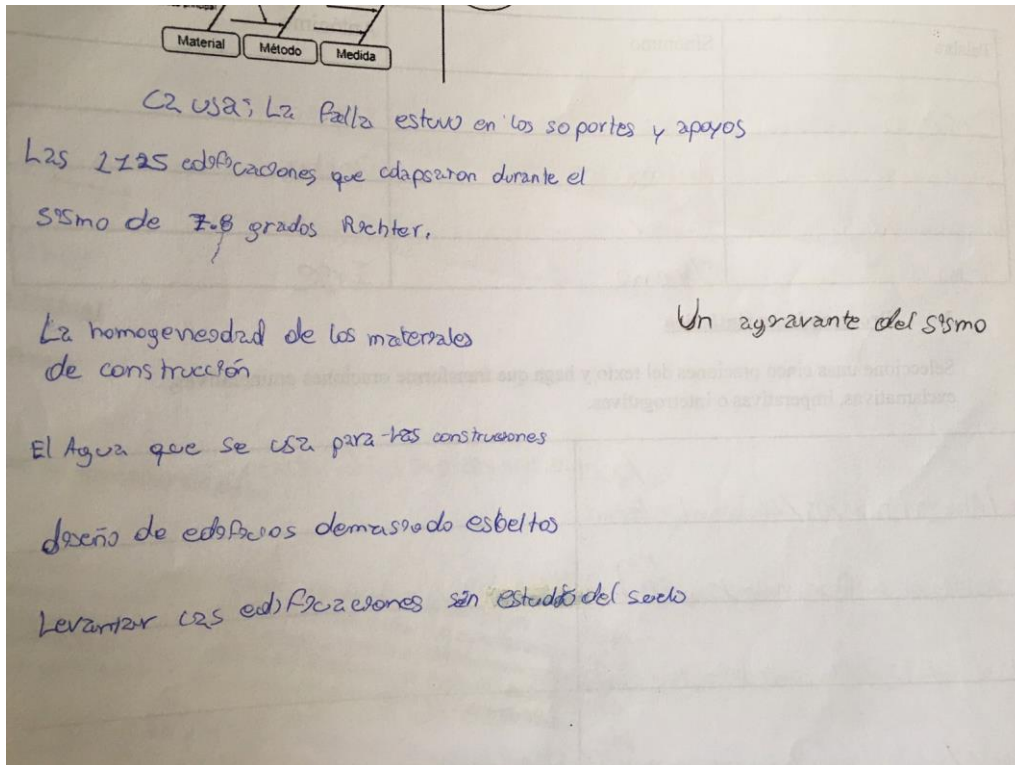 Material
Método
Medida
Causa: La falla estuvo en los soportes y apoyos
Las 2125 edificaciones que colapsaron durante el
sismo de 7.8 grados Richter.
La homogeneidad de los materiales
de construcción
Un agravante del sismo
El Agua que se usa para las construciones
diseño de edificios demasiado esbeltos
Levantar las edificaciones sin estudio del suelo